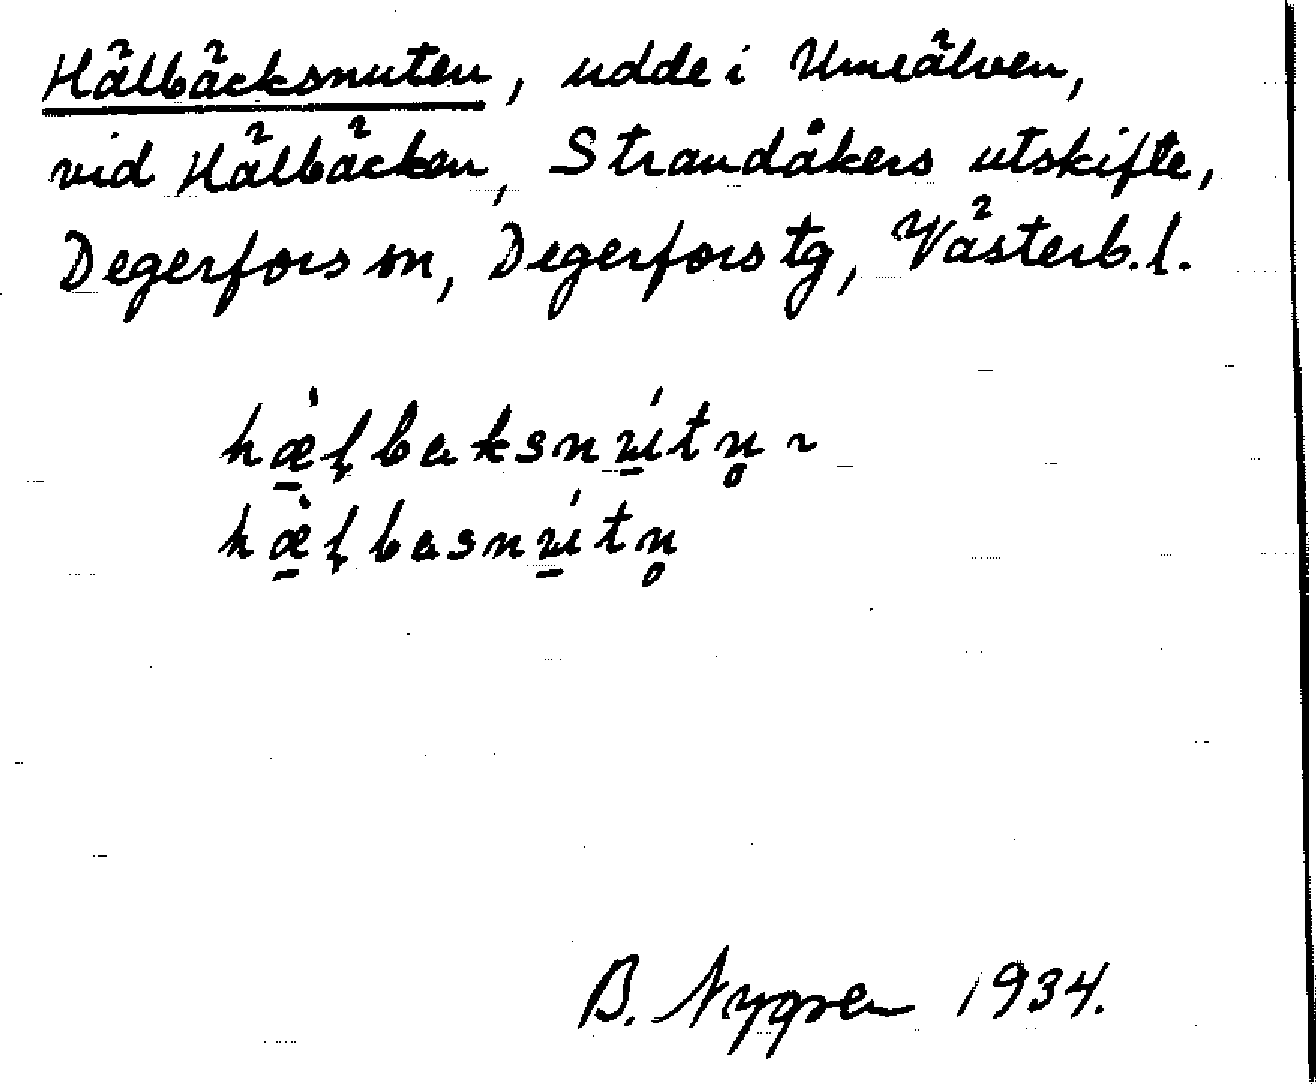 Hälbäcksnuten, udde i Umeälven,
vid Hälbäcken, Strandåkers utskifte,
Degerfors sn, Degerfors tg, Västerb. l.
hæ̠̀ḷbaksnú̠tn̥ ~
hæ̠̀ḷbasnú̠tn̥
B. Nygren 1934.